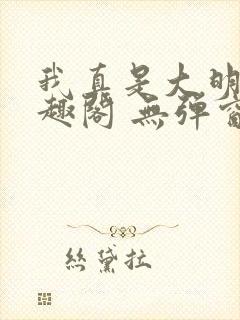 我真是大明
趣阁 無彈窗
絲黛拉